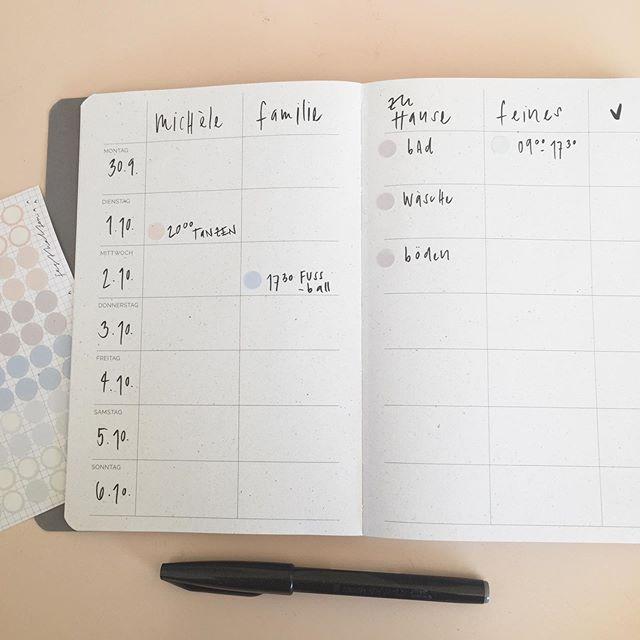 michèle
familie
zu
Hause
feines
✓
MONTAG
30.9.
bAd
09⁰⁰ 17³⁰
DIENSTAG
1.10.
20⁰⁰ TANZEN
Wäsche
MITTWOCH
2.10.
17³⁰ FUSS
-ball
böden
DONNERSTAG
3.10.
FREITAG
4.10.
SAMSTAG
5.10.
SONNTAG
6.10.